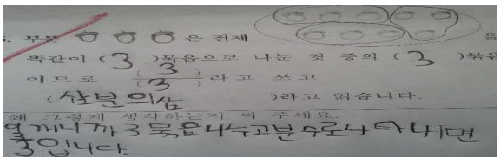 부분 은 전체 을
똑같이 ( 3 )묶음으로 나눈 것 중의 ( 3 )묶음
이므로 (3)/(3) 라고 쓰고
( 삼분의삼 )라고 읽습니다.
왜 그렇게 생각하는지 써 주세요.
니까 3묶음 나누고 분수로 나타내면
입니다